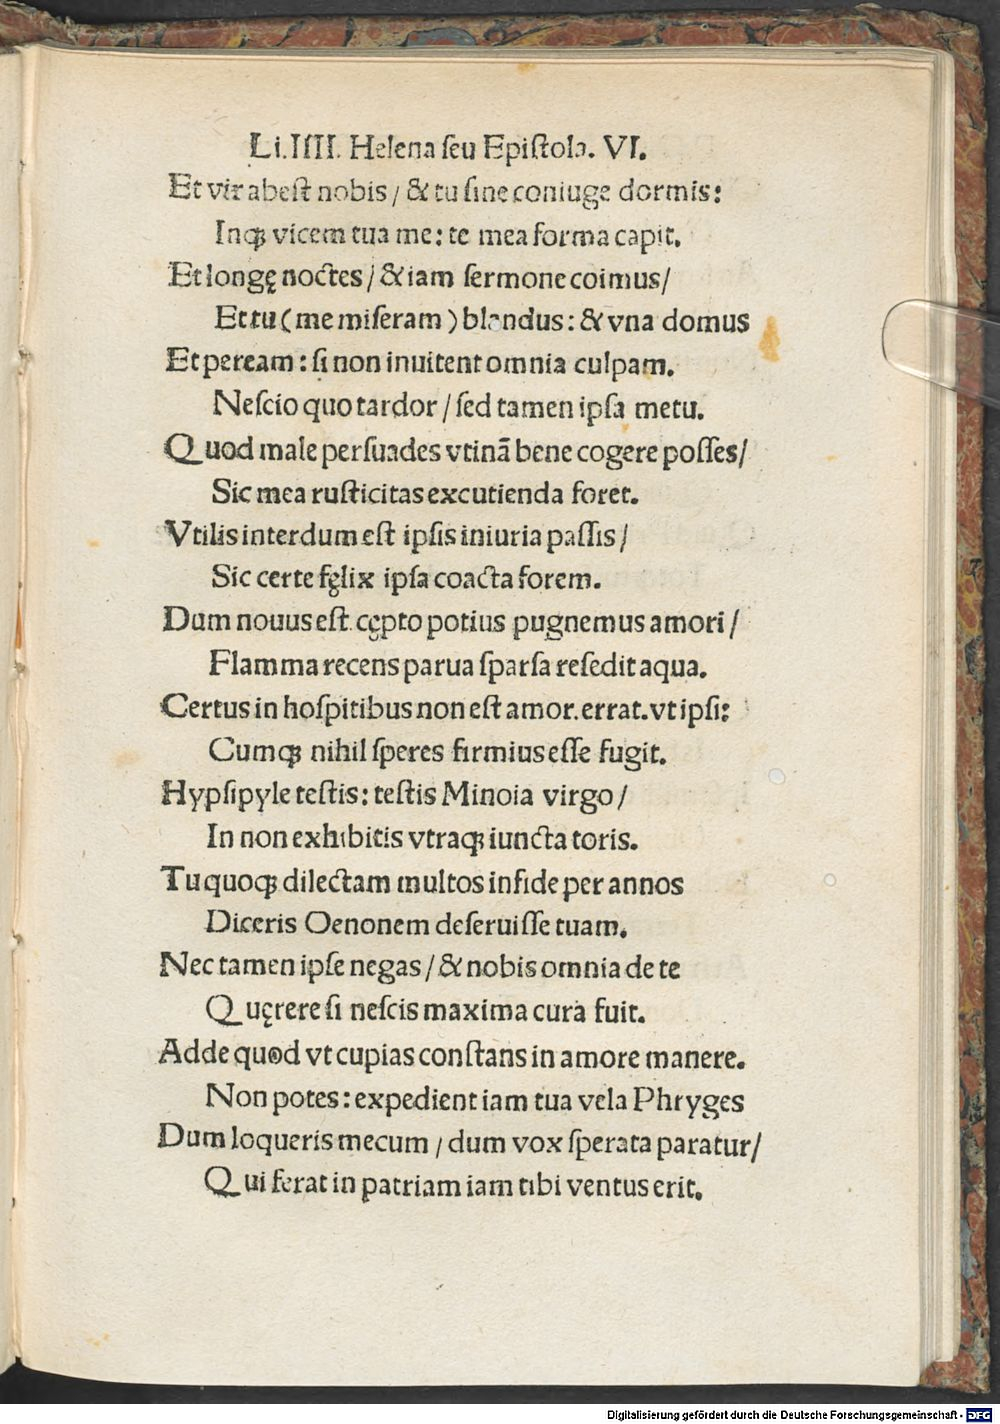 Li.IIII. Helena seu Epistola. VI.
Et vir abest nobis / & tu sine coniuge dormis:
Inqꝫ vicem tua me: te mea forma capit.
Et longę noctes / & iam sermone coimus /
Et tu ( me miseram ) blandus: & vna domus
Et peream: si non inuitent omnia culpam.
Nescio quo tardor / sed tamen ipsa metu.
Quod male persuades vtinā bene cogere posses /
Sic mea rusticitas excutienda foret.
Vtilis interdum est ipsis iniuria passis /
Sic certe fęlix ipsa coacta forem.
Dum nouus est cępto potius pugnemus amori /
Flamma recens parua sparsa resedit aqua.
Certus in hospitibus non est amor. errat. vt ipsi:
Cumqꝫ nihil speres firmius esse fugit.
Hypsipyle testis: testis Minoia virgo /
In non exhibitis vtraqꝫ iuncta toris.
Tu quoqꝫ dilectam multos infide per annos
Diceris Oenonem deseruisse tuam.
Nec tamen ipse negas / & nobis omnia de te
Quęrere si nescis maxima cura fuit.
Adde quod vt cupias constans in amore manere.
Non potes: expedient iam tua vela Phryges
Dum loqueris mecum / dum vox sperata paratur /
Qui ferat in patriam iam tibi ventus erit.
Digitalisierung gefördert durch die Deutsche Forschungsgemeinschaft - DFG